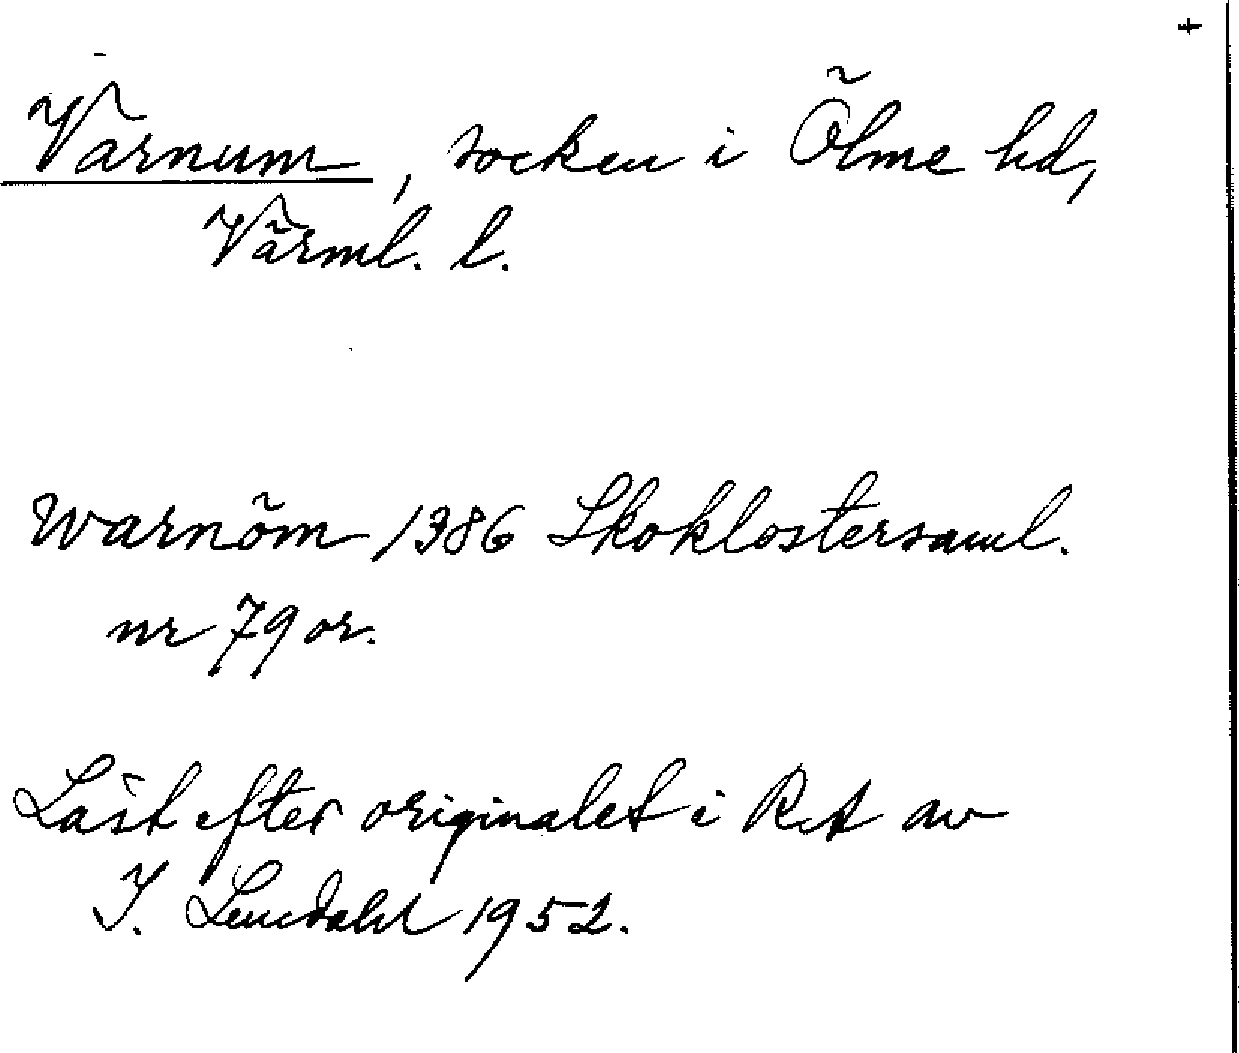 Varnum, socken i Ölme hd,
Värml. l.
Warnöm 1386 Skoklostersaml.
nr 79 or.
Läst efter originalet i RA av
I. Lundahl 1952.